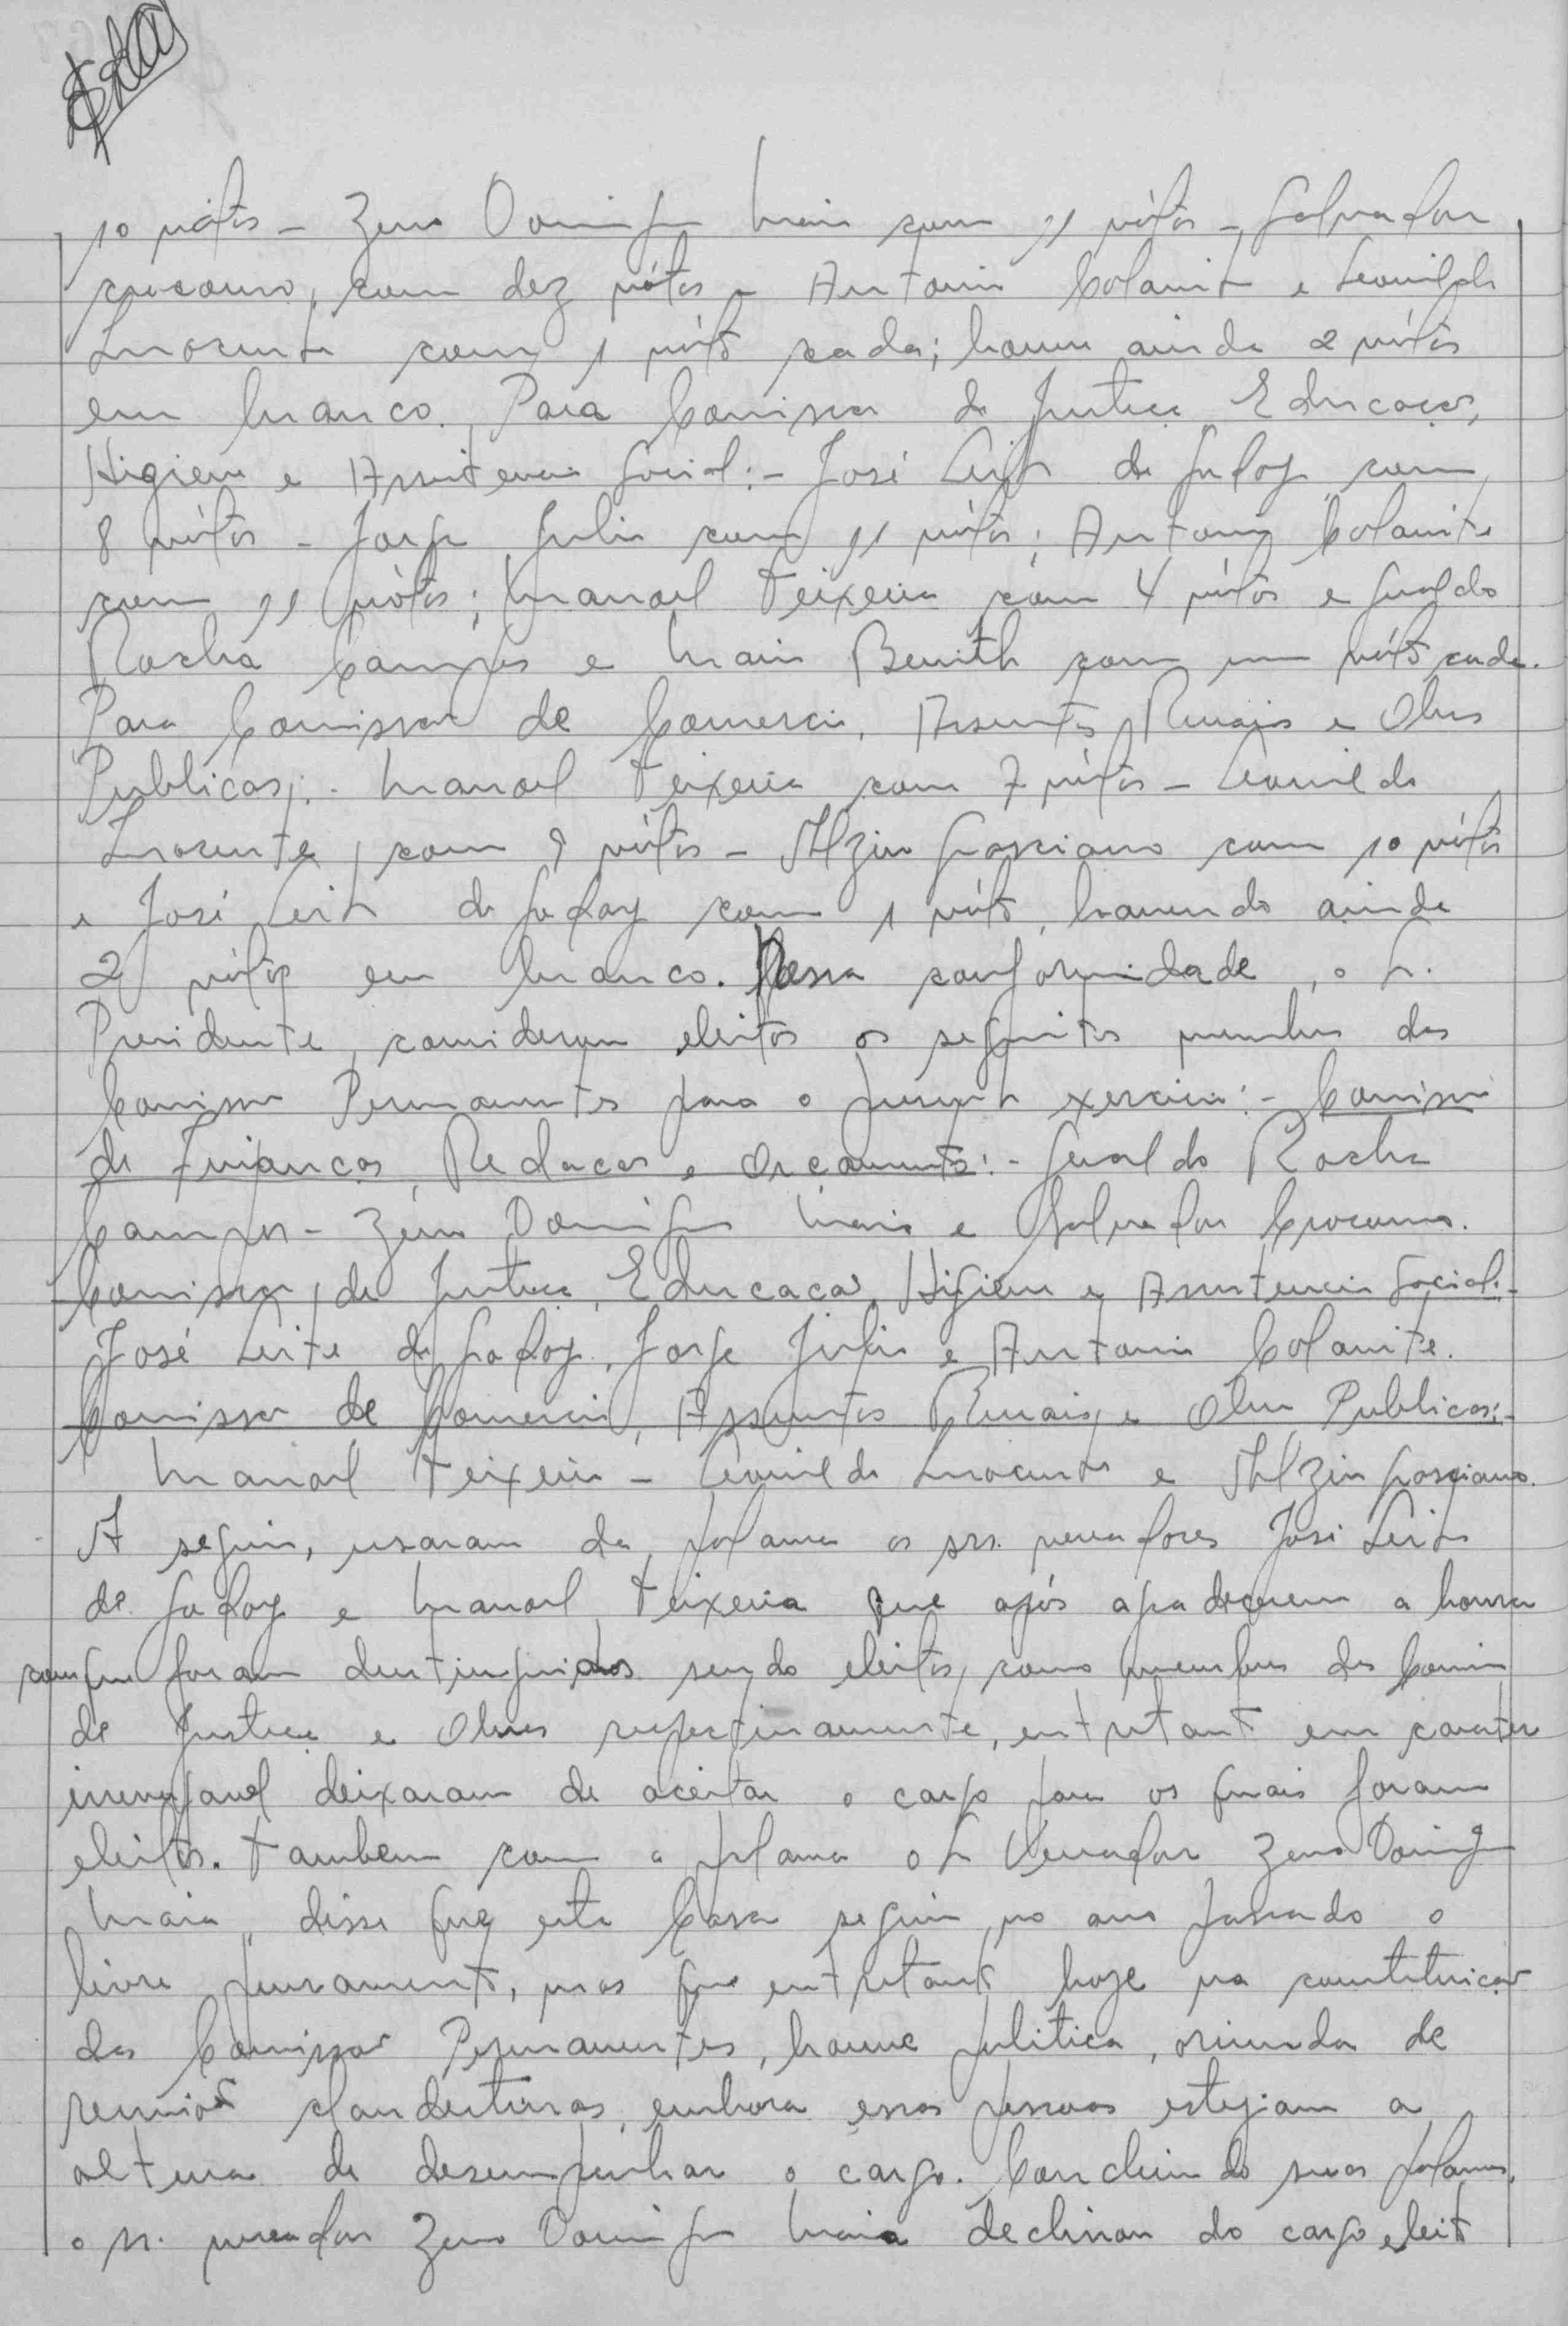 10 vótos - Zeno Domingos Maia com 11 vótos - Salvador
Crocomo, com dez vótos - Antonio Colanite e Leonildo
Inocente com 1 vóto cada; houve ainda 2 vótos
em branco. Para Comissão de Justiça Educação,
Higiene e Assistencia Social:- José Leite de Godoy com
8 vótos - Jorge Julio com 11 vótos; Antonio Colanite
com 11 vótos; Manoel Teixeira com 4 vótos e Geraldo
Rocha Campos e Maia com um vóto cada.
Para Comissão de Comercio, Assuntos Rurais e Obras
Publicas:- Manoel Teixeira com 7 vótos - Leonildo
Inocente, com 8 vótos - Alzira Graciano com 10 vótos
e José Leite de Godoy com 1 vóto, havendo ainda
2 vótos em branco. Nessa conformidade, o Sr.
Presidente, considerou eleitos os seguintes membros das
Comissões Permanentes para o presente exercicio:- Comissão
de Finanças, Redação e Orçamento:- Geraldo Rocha
Campos - Zeno Domingos Maia e Salvador Crocomo.
Comissão de Justiça, Educação, Higiene e Assistencia Social:-
José Leite de Godoy, Jorge Julio e Antonio Colanite.
Comissão de Comercio, Assuntos Rurais e Obras Publicas:-
Manoel Teixeira - Leonildo Inocente e Alzira Graciano.
A seguir, usaram da palavra os srs. vereadores José Leite
de Godoy e Manoel Teixeira que após agradecerem a honra
com que foram destinguidos sendo eleitos como membros das Comissões
de Justiça e Obras respectivamente, entretanto em carater
irrevogavel deixaram de aceitar o cargo para os quais foram
eleitos. Tambem com a palavra o Sr Vereador Zeno Domingos
Maia, disse que esta Casa seguiu no ano passado o
livre pensamento, mas que entretanto hoje na constituição
das Comissões Permanentes, houve politica, oriunda de
reuniões clandestinas, embora essas pessoas estejam a
altura de desempenhar o cargo. Concluindo suas palavras,
o sr. vereador Zeno Domingos Maia declinou do cargo eleito